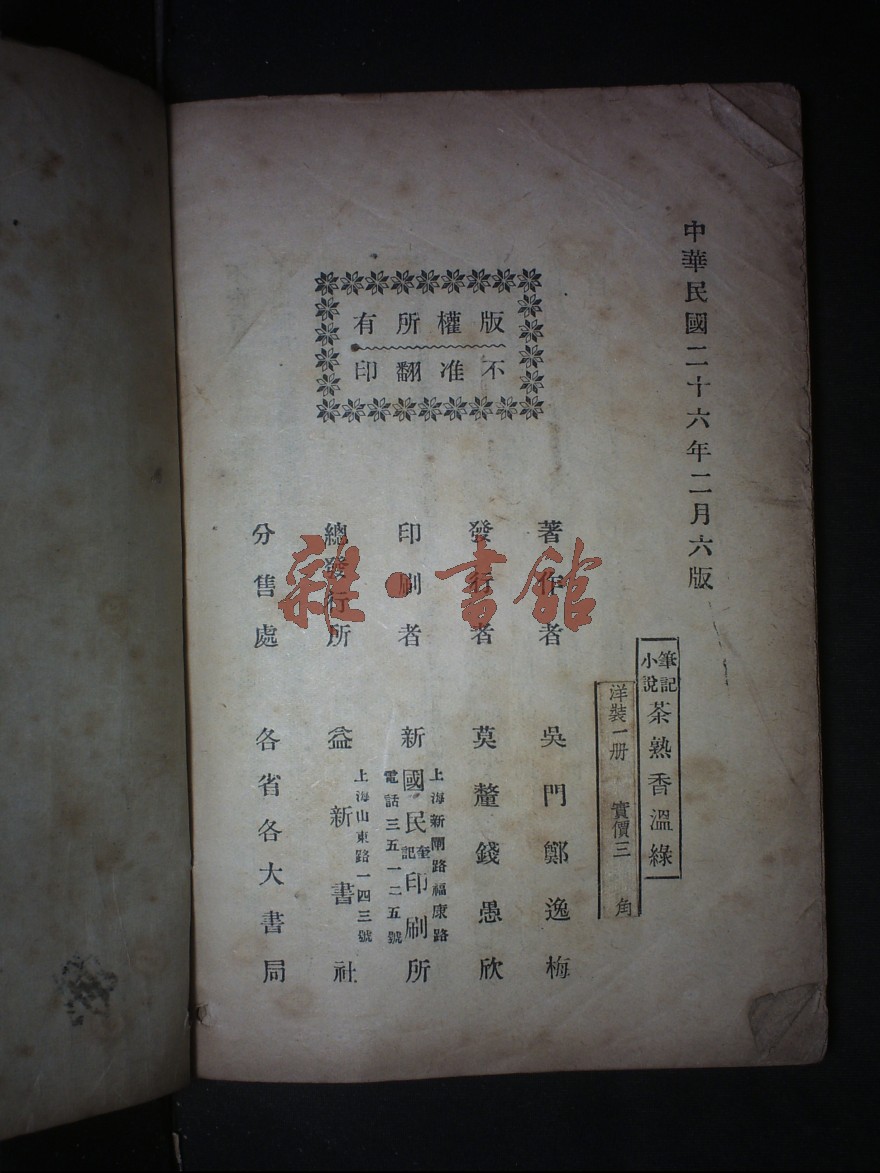 中華民國二十六年二月六版
筆記小說 茶熟香溫綠
洋裝一册 實價三角
版權所有
不准翻印
著作者 吳門鄭逸梅
發行者 莫釐錢愚欣
印刷者 新國民奎記印刷所
上海新閘路福康路
電話三五一二五號
總發行所 益新書社
上海山東路一四三號
分售處 各省各大書局
雜·書館